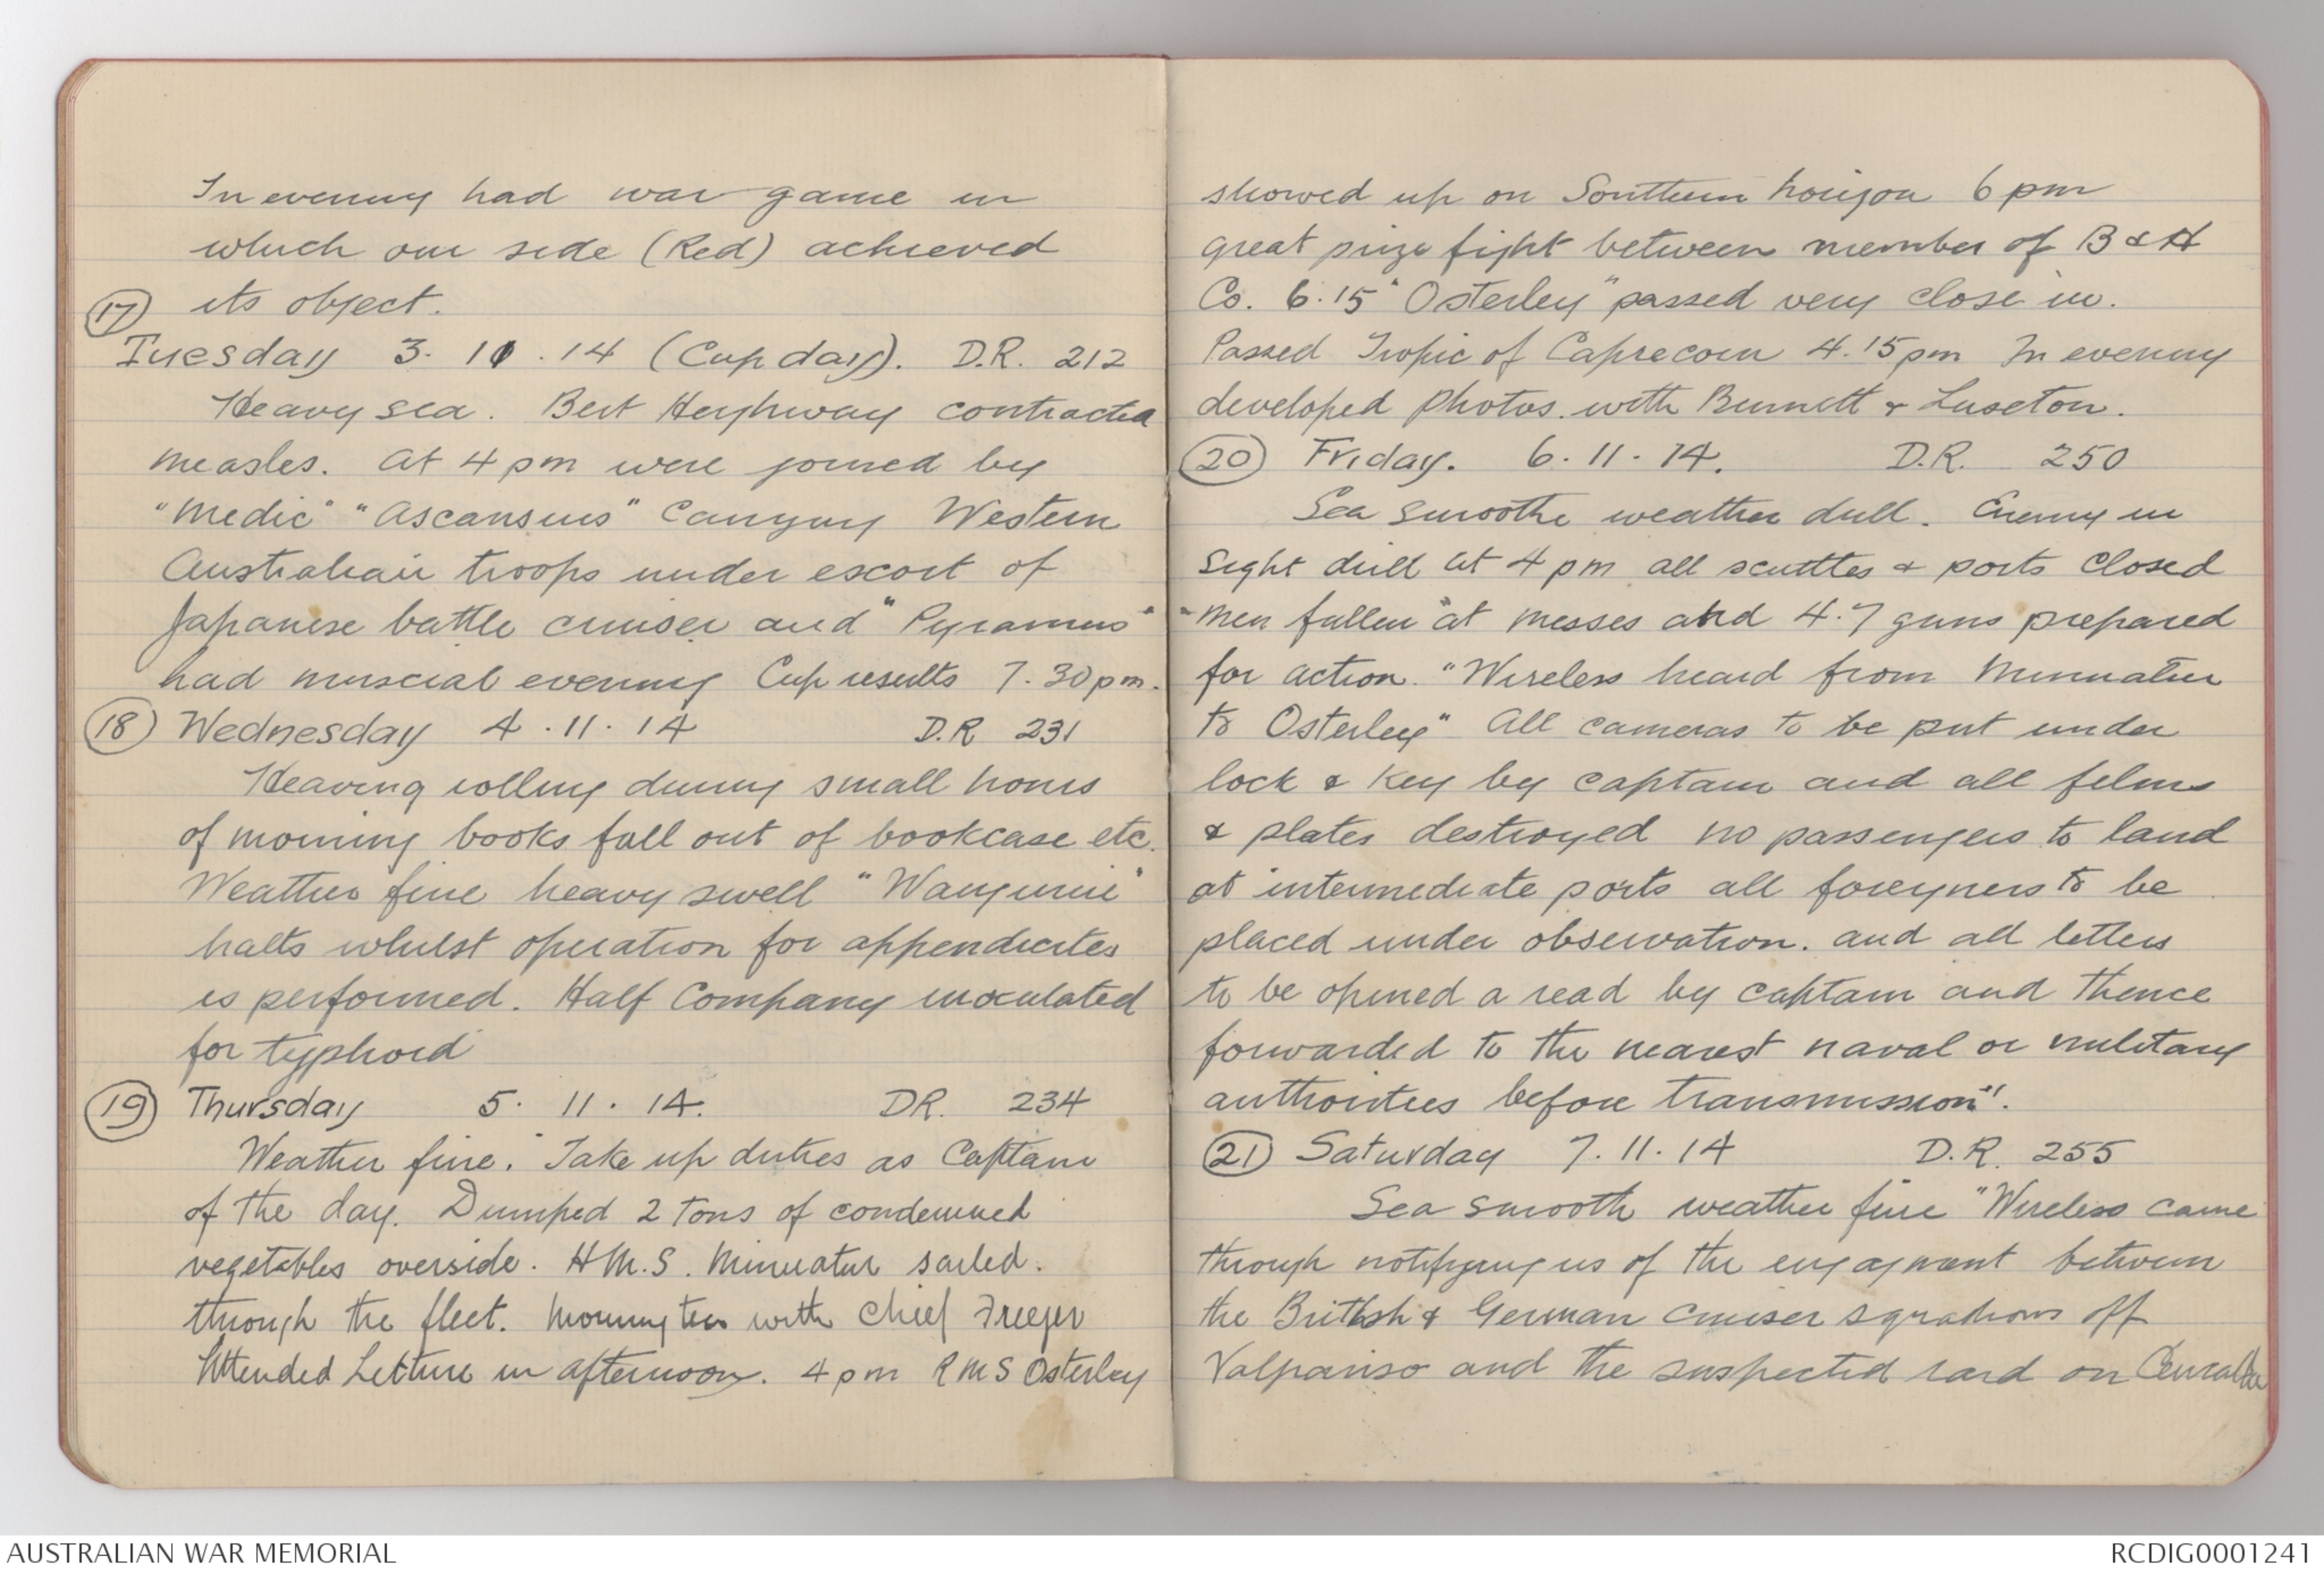 In evening had war game in
which our side (Red) achieved
its object.
(17)
Tuesday 3. 11. 14 (Cup day). D.R. 212
Heavy sea. Bert Heighway contracted
measles. At 4 pm were joined by
"Medic" "Ascansius" Carrying Western
Australian troops under escort of
Japanese battle cruiser and "Pyramus"
had muscial evening Cup results 7.30 pm.
(18) Wednesday 4. 11. 14 D.R 231
Heaving rolling during small hours
of morning books fall out of bookcase etc.
Weather fine heavy swell "
halts whilst operation for appendicites
is performed. Half Company inoculated
for typhoid
(19) Thursday 5. 11. 14. DR. 234
Weather fine. Take up duties as Captain
of the day. Dumped 2 tons of condemned
vegetables overside. H.M.S. Minuatur sailed.
through the fleet. Morning tea with Chief
Attended Lecture in afternoon. 4 pm RMS Osterley
showed up on Southern horizon 6 pm
great prize fight between member of B & H
Co. 6.15 "Osterley" passed very close in.
Passed Tropic of Caprecorn 4.15 pm In evening
developed photos. with Burnett & Luseton.
(20) Friday. 6. 11. 14. D.R. 250
Sea smoothe weather dull. Enemy in
sight drill at 4 pm all scuttles & ports closed
"men fallen" at messes and 4.7 guns prepared
for action. "Wireless heard from Minuatur
to Osterley" All cameras to be put under
lock & key by captain and all films
& plates destroyed no passengers to land
at intermediate ports all foreyners to be
placed under observation. and all letters
to be opened a read by captain and thence
forwarded to the nearest naval or military
authorities before transmission".
(21) Saturday 7. 11. 14 D.R. 255
Sea smooth weather fine "Wireless came
through notifying us of the engagment between
the British & German cruiser sqradrons off
Valpariso and the suspected raid on
AUSTRALIAN WAR MEMORIAL
RCDIG0001241